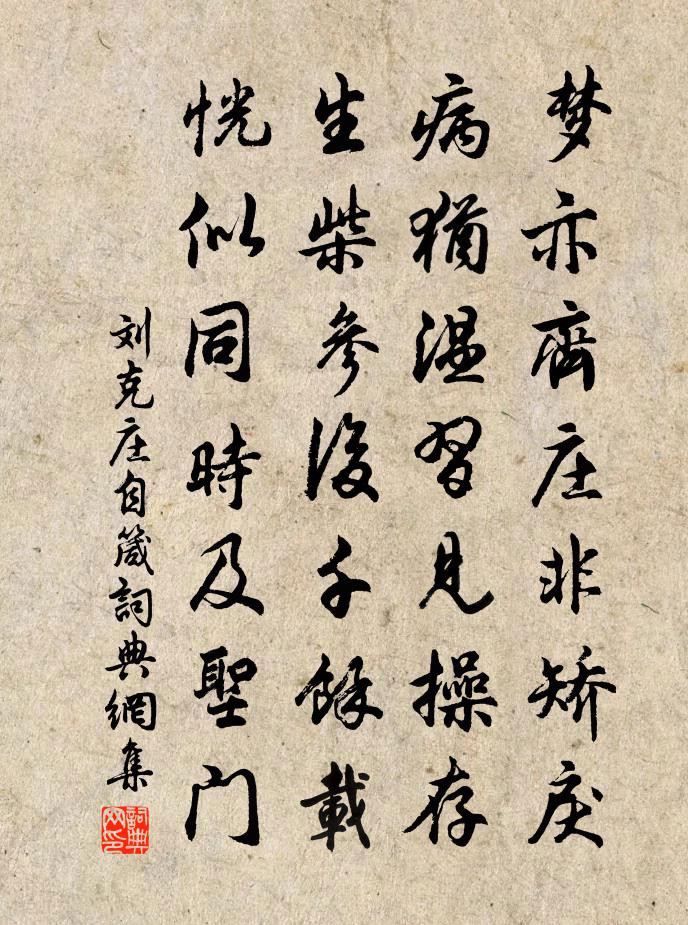 梦亦齊庄非矫戾
病猶温習見操存
生柴參後千餘載
恍似同時及聖门
刘克庄自箴詞典網集
詞典网印